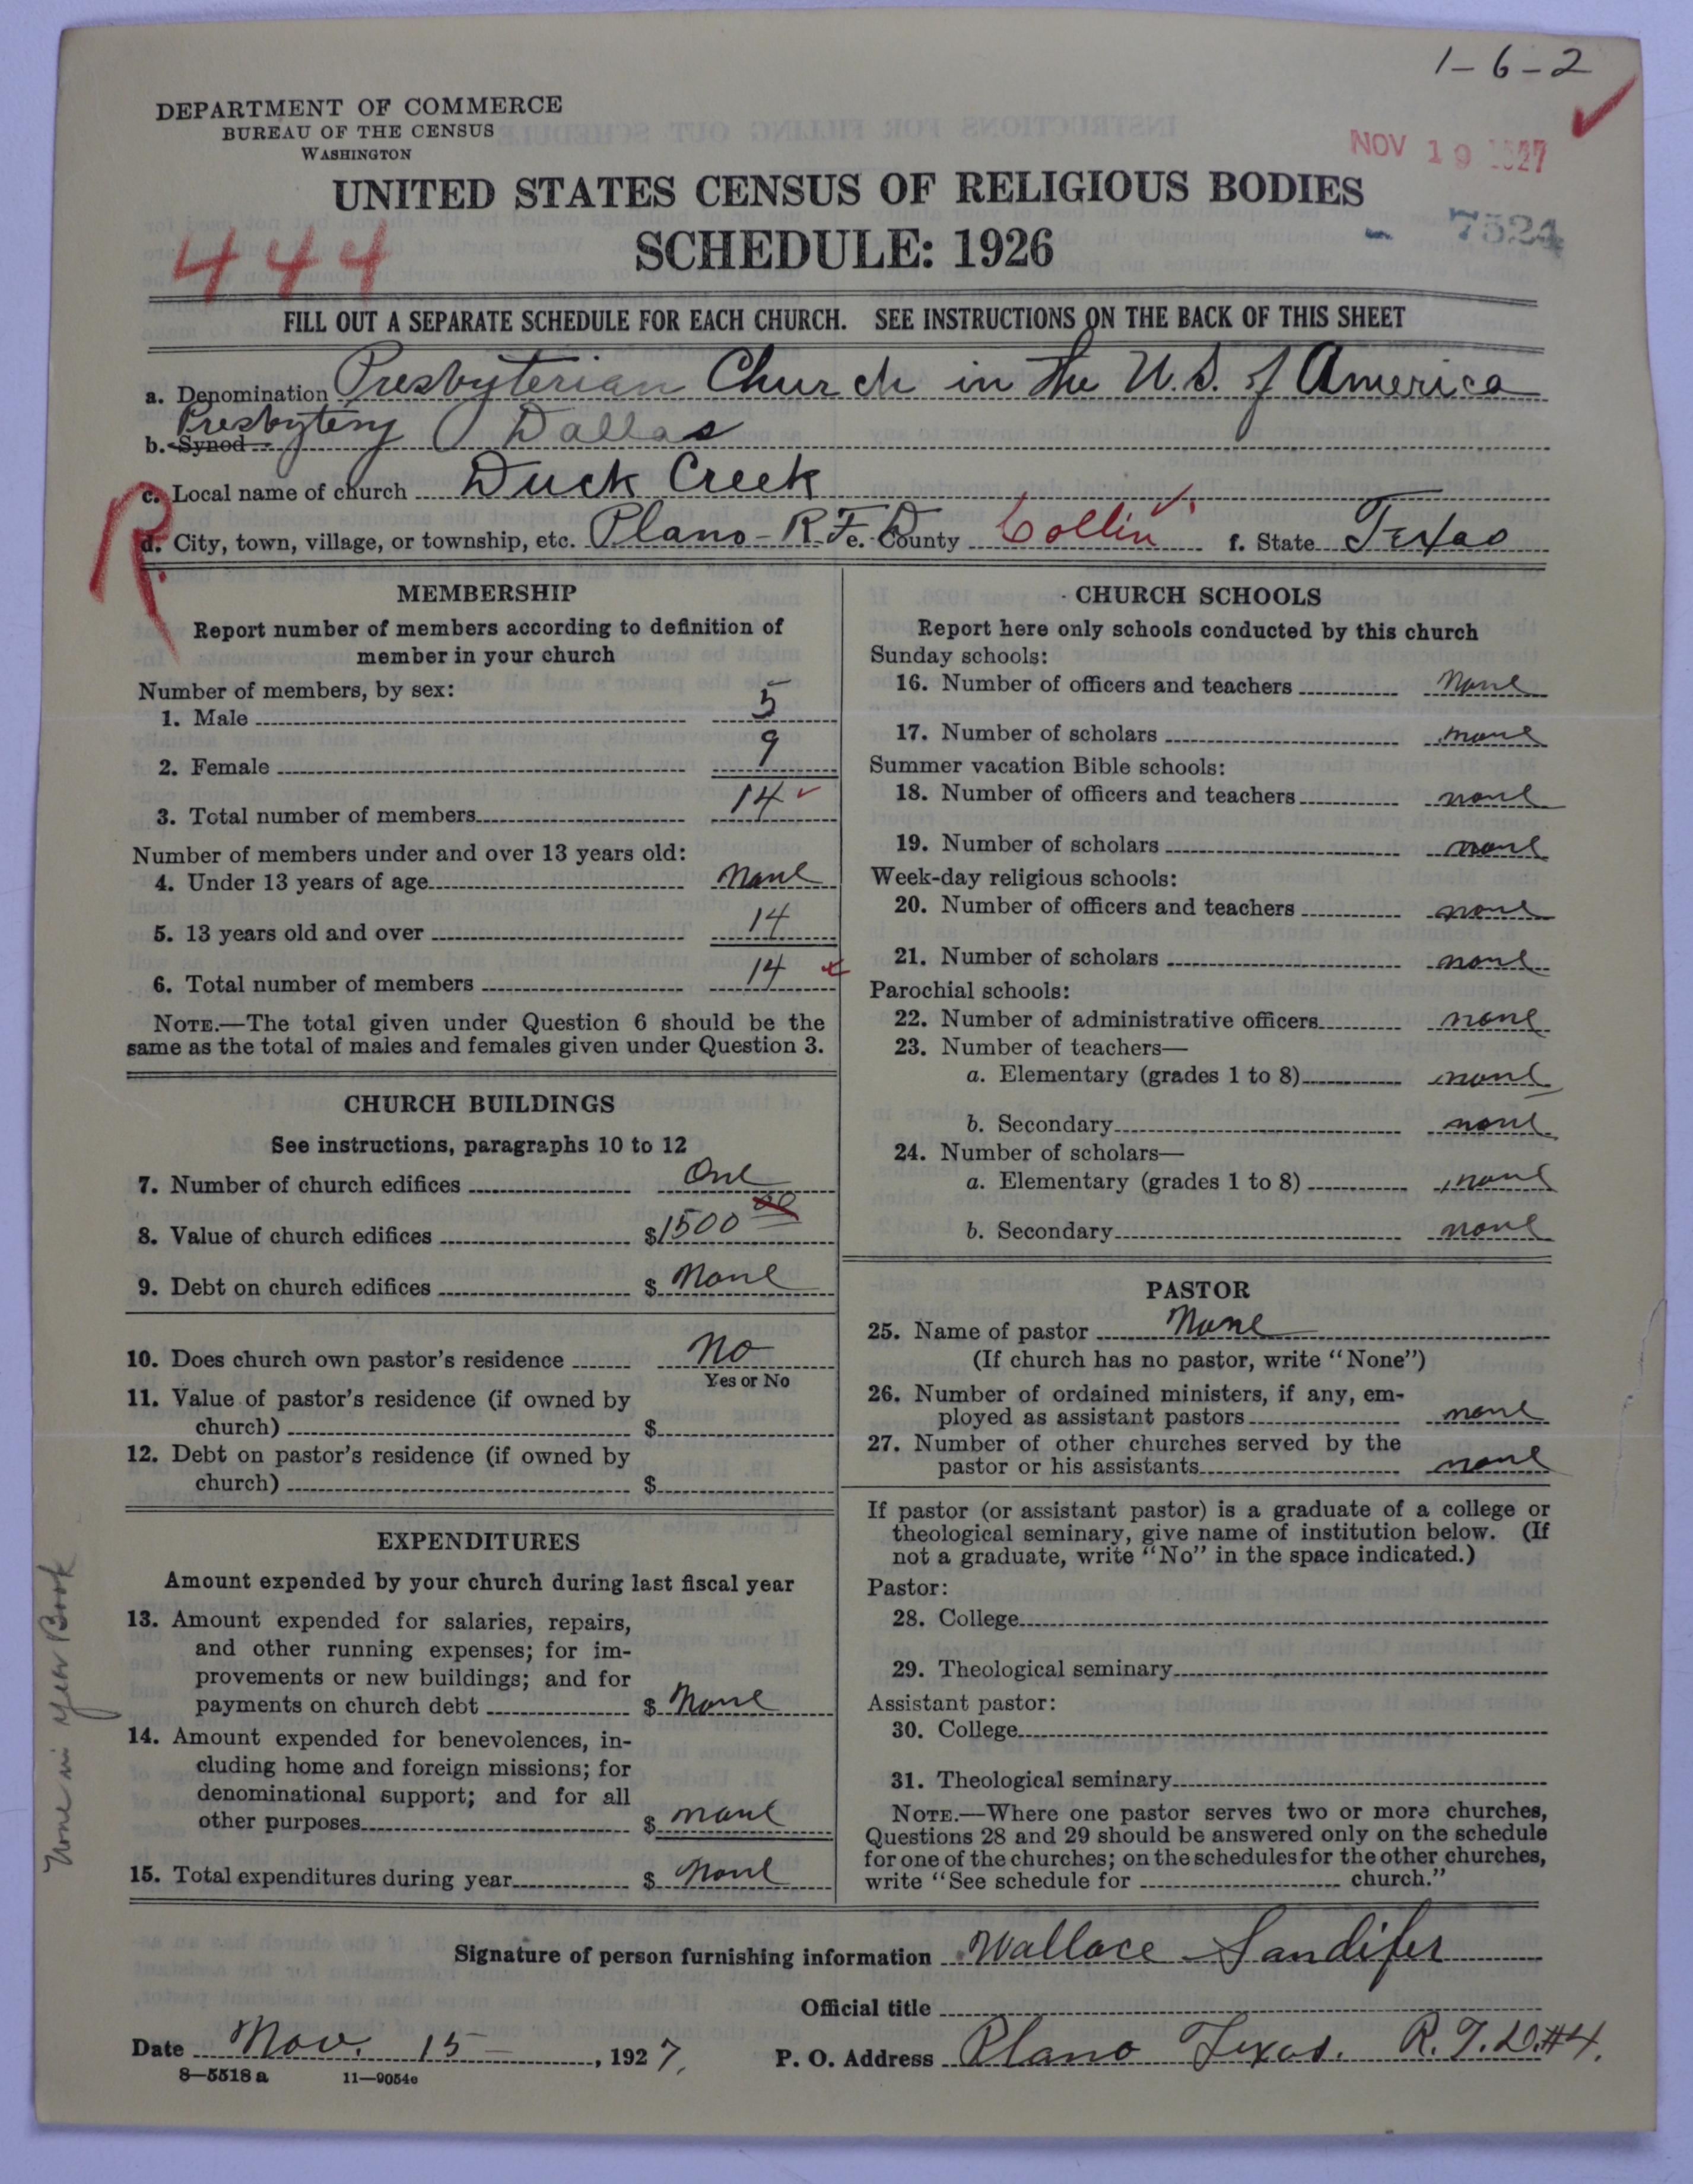 1-6-2
DEPARTMENT OF COMMERCE
BUREAU OF THE CENSUS
WASHINGTON
NOV 19 1927
UNITED STATES CENSUS OF RELIGIOUS BODIES
SCHEDULE: 1926
7524
444
FILL OUT A SEPARATE SCHEDULE FOR EACH CHURCH. SEE INSTRUCTIONS ON THE BACK OF THIS SHEET
a. Denomination Presbyterian Church in the U.S. of America
b. Synod Presbytery Dallas
c. Local name of church Duck Creek
R.
d. City, town, village, or township, etc. Plano - R.F.D. e. County Collin f. State Texas
MEMBERSHIP
Report number of members according to definition of
member in your church
Number of members, by sex:
1. Male 5
2. Female 9
3. Total number of members 14
Number of members under and over 13 years old:
4. Under 13 years of age None
5. 13 years old and over 14
6. Total number of members 14
NOTE.—The total given under Question 6 should be the
same as the total of males and females given under Question 3.
CHURCH BUILDINGS
See instructions, paragraphs 10 to 12
7. Number of church edifices One
8. Value of church edifices $1500 00
9. Debt on church edifices $ None
10. Does church own pastor's residence No
Yes or No
11. Value of pastor's residence (if owned by
church) $
12. Debt on pastor's residence (if owned by
church) $
EXPENDITURES
Amount expended by your church during last fiscal year
13. Amount expended for salaries, repairs,
and other running expenses; for im-
provements or new buildings; and for
payments on church debt $ None
14. Amount expended for benevolences, in-
cluding home and foreign missions; for
denominational support; and for all
other purposes $ none
15. Total expenditures during year $ None
None in Year Book
CHURCH SCHOOLS
Report here only schools conducted by this church
Sunday schools:
16. Number of officers and teachers None
17. Number of scholars none
Summer vacation Bible schools:
18. Number of officers and teachers none
19. Number of scholars none
Week-day religious schools:
20. Number of officers and teachers none
21. Number of scholars none
Parochial schools:
22. Number of administrative officers none
23. Number of teachers—
a. Elementary (grades 1 to 8) none
b. Secondary none
24. Number of scholars—
a. Elementary (grades 1 to 8) none
b. Secondary none
PASTOR
25. Name of pastor None
(If church has no pastor, write "None")
26. Number of ordained ministers, if any, em-
ployed as assistant pastors none
27. Number of other churches served by the
pastor or his assistants none
If pastor (or assistant pastor) is a graduate of a college or
theological seminary, give name of institution below. (If
not a graduate, write "No" in the space indicated.)
Pastor:
28. College
29. Theological seminary
Assistant pastor:
30. College
31. Theological seminary
NOTE.—Where one pastor serves two or more churches,
Questions 28 and 29 should be answered only on the schedule
for one of the churches; on the schedules for the other churches,
write "See schedule for church."
Signature of person furnishing information Wallace Sandifer
Official title
Date Nov. 15, 1927. P. O. Address Plano Texas. R.F.D.#4.
8—5518 a 11—9054c